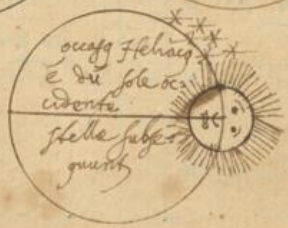 occasq Heliacq
ē dū sole oc:
cidente
stellæ subse:
quunt